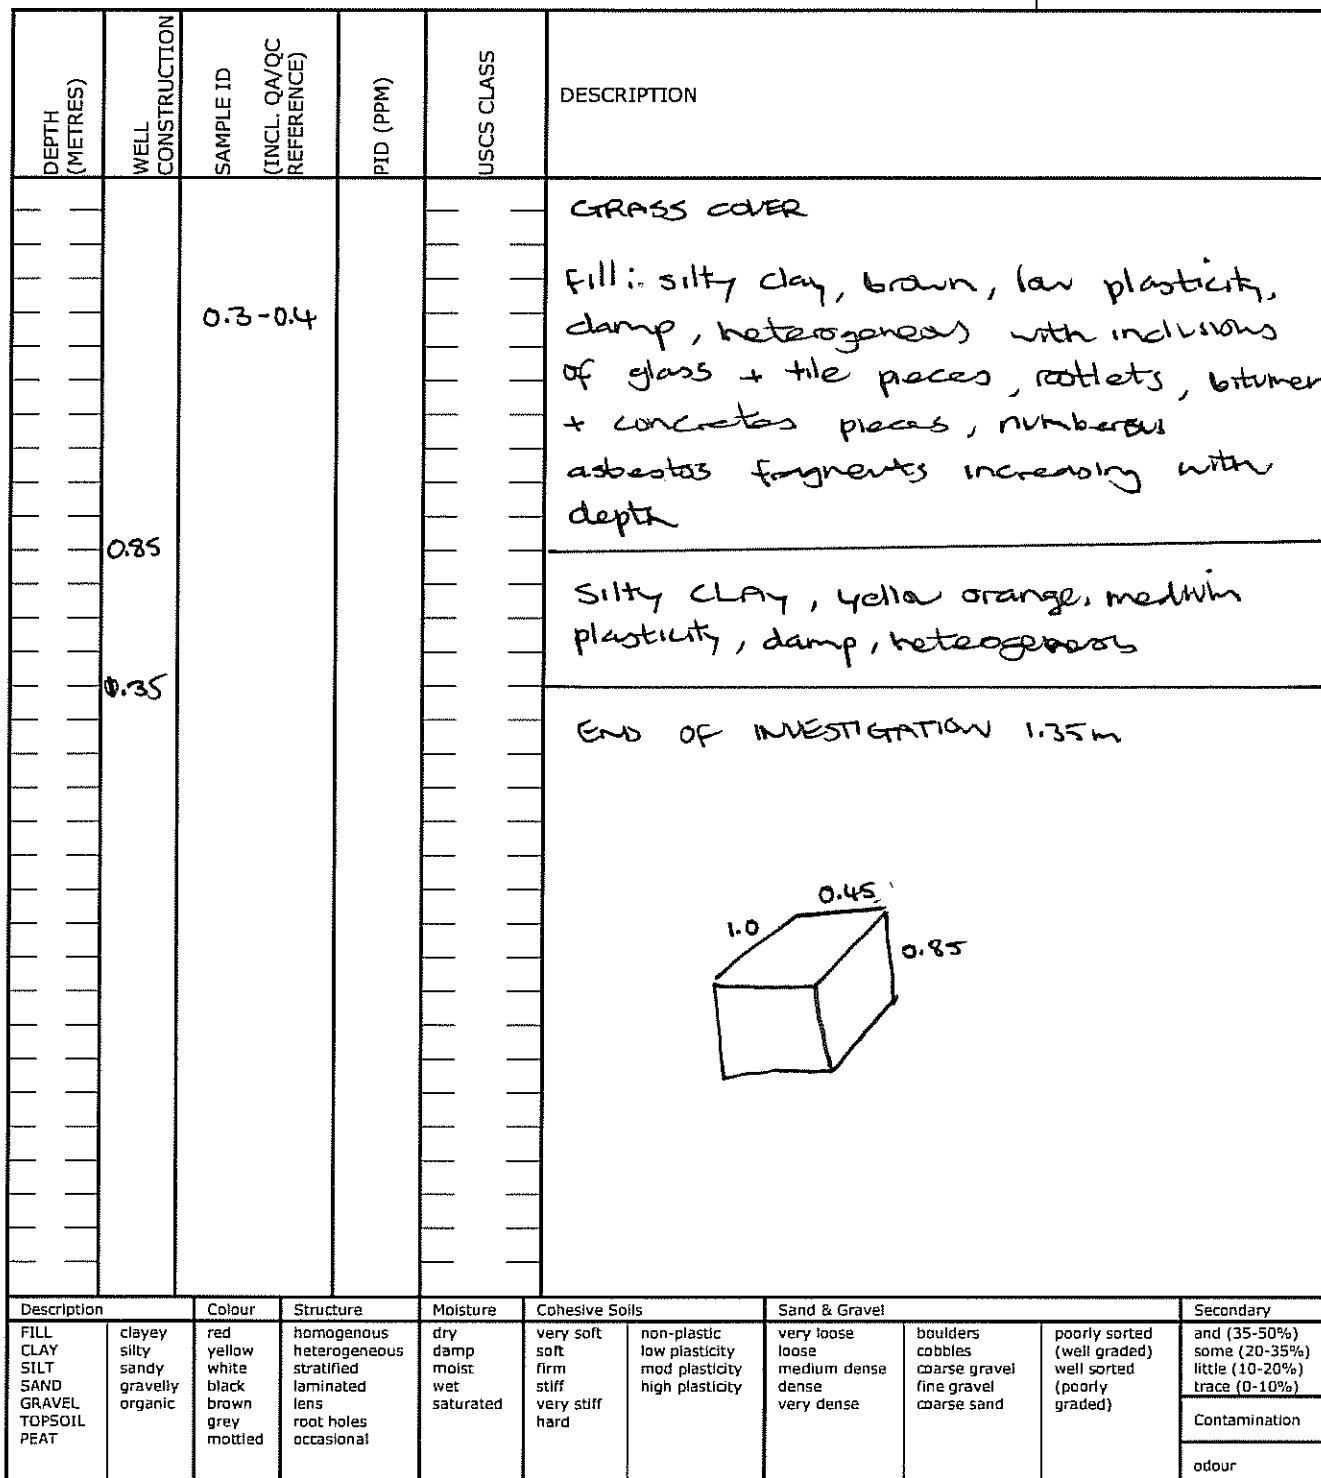 DEPTH
(METRES)
WELL
CONSTRUCTION
SAMPLE ID
(INCL. QA/QC
REFERENCE)
PID (PPM)
USCS CLASS
DESCRIPTION
GRASS COVER
Fill: silty clay, brown, low plasticity,
0.3-0.4
damp, heterogeneous with inclusions
of glass + tile pieces, rootlets, bitumen
+ concretes pieces, numberous
asbestos fragments increasing with
depth
0.85
Silty CLAY, yellow orange, medium
plasticity, damp, heteogeneous
1.35
END OF INVESTIGATION 1.35m
0.45
1.0
0.85
Description
Colour
Structure
Moisture
Cohesive Soils
Sand & Gravel
Secondary
FILL
CLAY
SILT
SAND
GRAVEL
TOPSOIL
PEAT
clayey
silty
sandy
gravelly
organic
red
yellow
white
black
brown
grey
mottled
homogenous
heterogeneous
stratified
laminated
lens
root holes
occasional
dry
damp
moist
wet
saturated
very soft
soft
firm
stiff
very stiff
hard
non-plastic
low plasticity
mod plasticity
high plasticity
very loose
loose
medium dense
dense
very dense
boulders
cobbles
coarse gravel
fine gravel
coarse sand
poorly sorted
(well graded)
well sorted
(poorly
graded)
and (35-50%)
some (20-35%)
little (10-20%)
trace (0-10%)
Contamination
odour